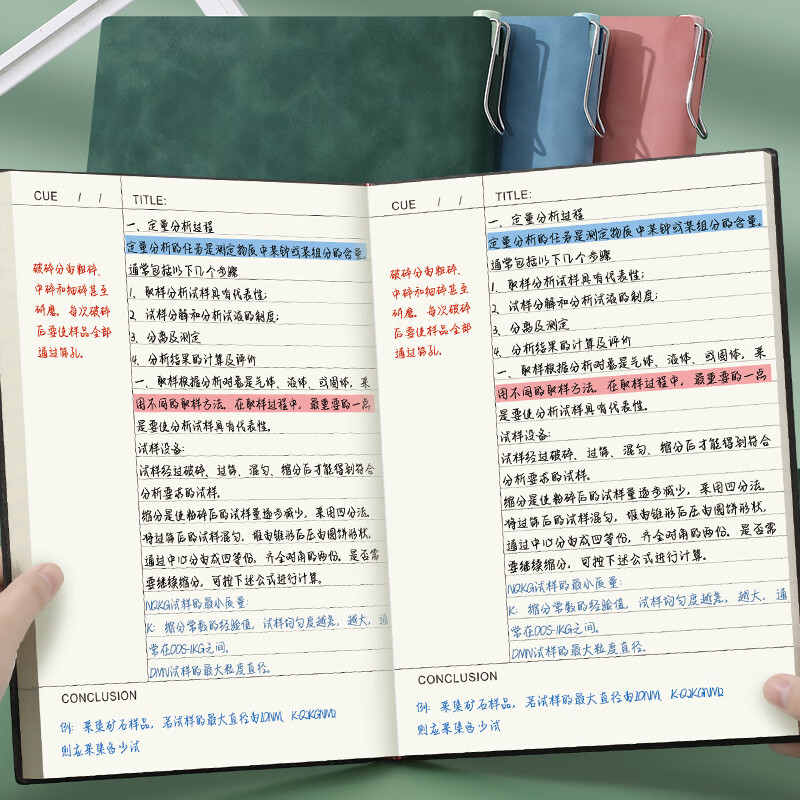 CUE / /
TITLE:
一、定量分析过程
定量分析的任务是测定物质中某种或某组分的含量
通常包括以下几个步骤
1、取样分析试样具有代表性;
2、试样分解和分析试液的制度;
3、分离及测定
4、分析结果的计算及评价
一、取样根据分析对象是气体、液体、或固体,采
用不同的取样方法。在取样过程中,最重要的一点
是要使分析试样具有代表性。
试样设备:
试样经过破碎、过筛、混匀、缩分后才能得到符合
分析要求的试样。
缩分是使粉碎后的试样量逐步减少,采用四分法。
将过筛后的试样混匀,堆由锥形后压由圆饼形状,
通过中心分由成四等份,弃全对角的两份。是否需
要继续缩分,可按下述公式进行计算。
NQKG试样的最小质量:
K:缩分常数的经验值,试样均匀度越差,越大,通
常在005-1KG之间。
DMN试样的最大粒度直径。
破碎分由粗碎、
中碎和细碎甚至
研磨。每次破碎
后要使样品全部
通过筛孔。
CONCLUSION
例:采集矿石样品,若试样的最大直径由
则应采集多少试
CUE / /
TITLE:
一、定量分析过程
定量分析的任务是测定物质中某种或某组分的含量。
通常包括以下几个步骤
1、取样分析试样具有代表性;
2、试样分解和分析试液的制度;
3、分离及测定
4、分析结果的计算及评价
一、取样根据分析对象是气体、液体、或固体,采
用不同的取样方法。在取样过程中,最重要的一点
是要使分析试样具有代表性。
试样设备:
试样经过破碎、过筛、混匀、缩分后才能得到符合
分析要求的试样。
缩分是使粉碎后的试样量逐步减少,采用四分法。
将过筛后的试样混匀,堆由锥形后压由圆饼形状,
通过中心分由成四等份,弃全对角的两份。是否需
要继续缩分,可按下述公式进行计算。
NQKG试样的最小质量:
K:缩分常数的经验值,试样均匀度越差,越大,通
常在005-1KG之间。
DMN试样的最大粒度直径。
破碎分由粗碎、
中碎和细碎甚至
研磨。每次破碎
后要使样品全部
通过筛孔。
CONCLUSION
例:采集矿石样品,若试样的最大直径由
则应采集多少试